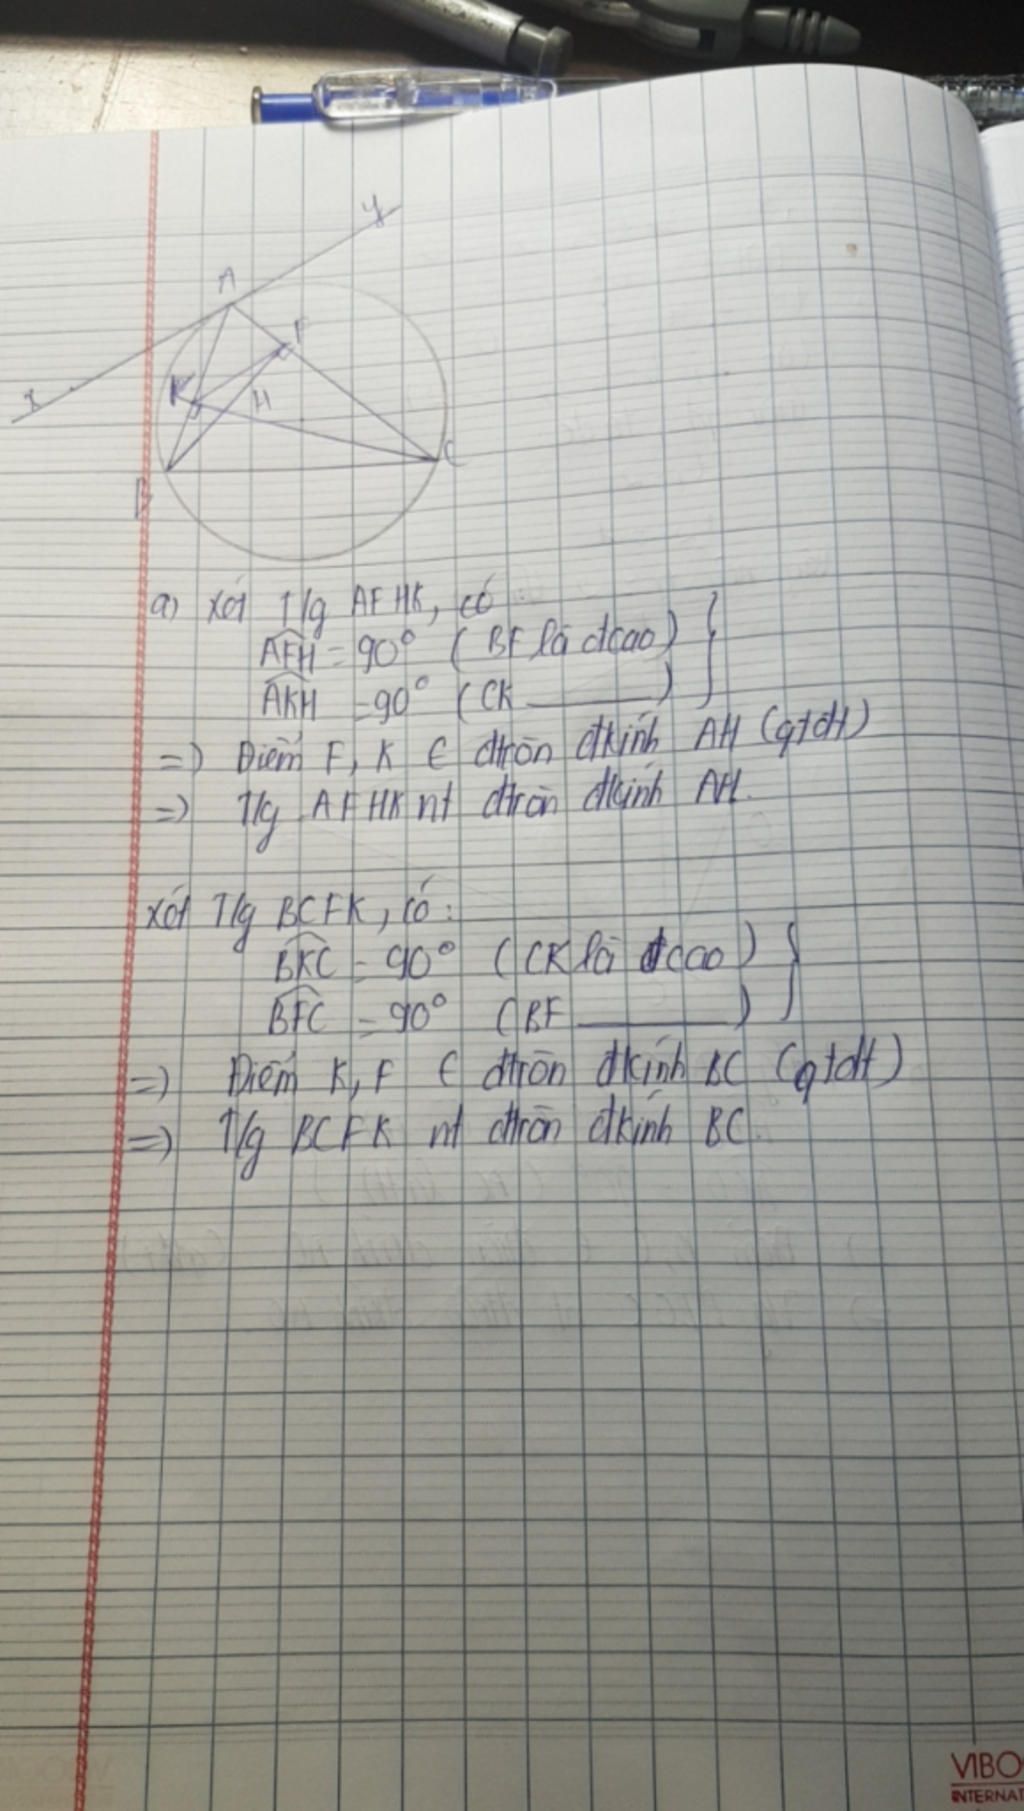 y
A
F
K
H
x
C
B
a) Xét T/g AFHK, có
AFH = 90° ( BF là đcao )
AKH = 90° ( CK ______ )
=) Điểm F, K ∈ đtròn đkính AH (qtđt)
=) T/g AFHK nt đtròn đkính AH.
Xét T/g BCFK, có :
BKC = 90° ( CK là đcao )
BFC = 90° ( BF ______ )
=) Điểm K, F ∈ đtròn đkính BC (qtđt)
=) T/g BCFK nt đtròn đkính BC.
VIBO
INTERNAT